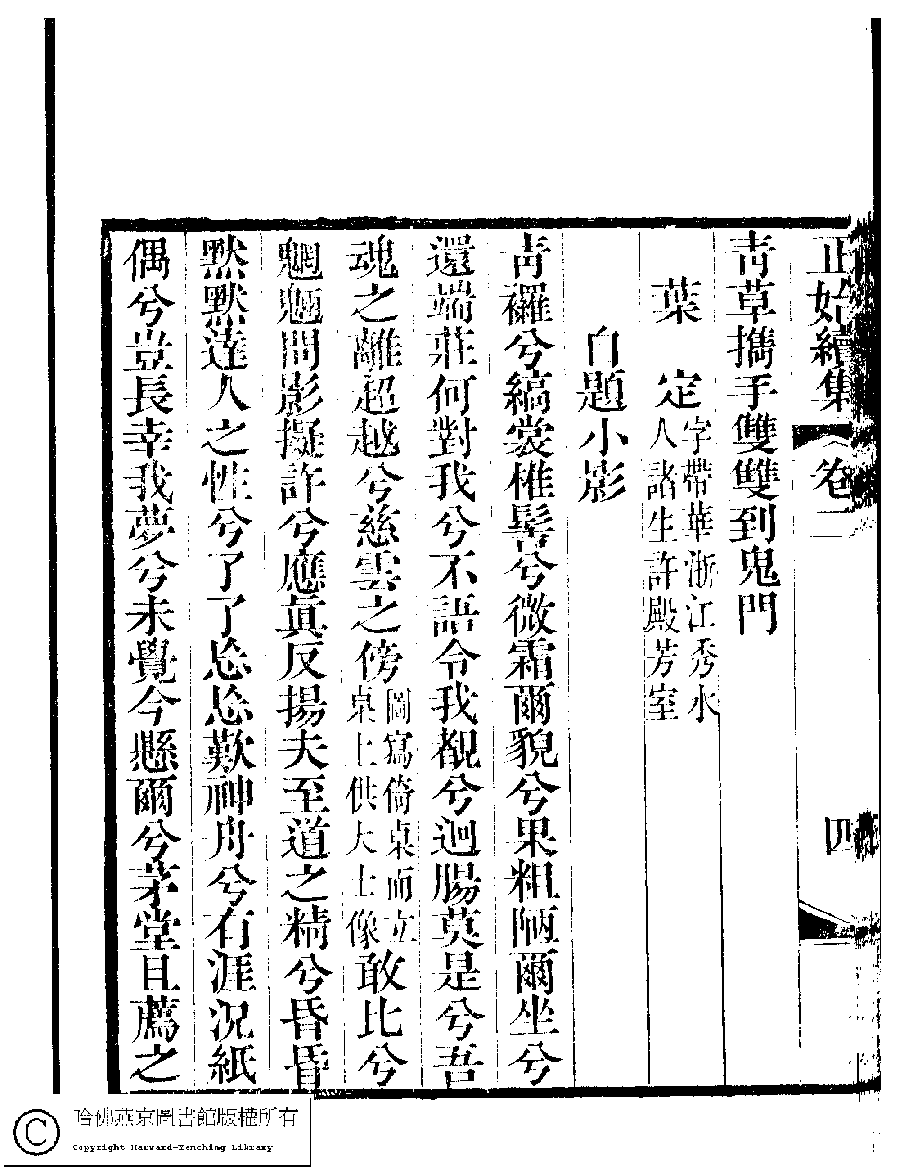 正始續集 卷一 四
靑草擕手雙雙到鬼門
葉 定 字帶華浙江秀水
人諸生許殿芳室
自題小影
靑䙨兮縞裳椎髻兮微霜爾貌兮果粗陋爾坐兮
還端莊何對我兮不語令我覩兮迴腸莫是兮吾
魂之離超越兮慈雲之傍 圖寫倚桌而立
桌上供大士像 敢比兮
魍魎問影擬許兮應眞反揚夫至道之精兮昏昏
默默達人之性兮了了惢惢歎神舟兮有涯況紙
偶兮豈長幸我夢兮未覺今懸爾兮茅堂且薦之
哈佛燕京圖書館版權所有
Copyright Harvard-Yenching Library